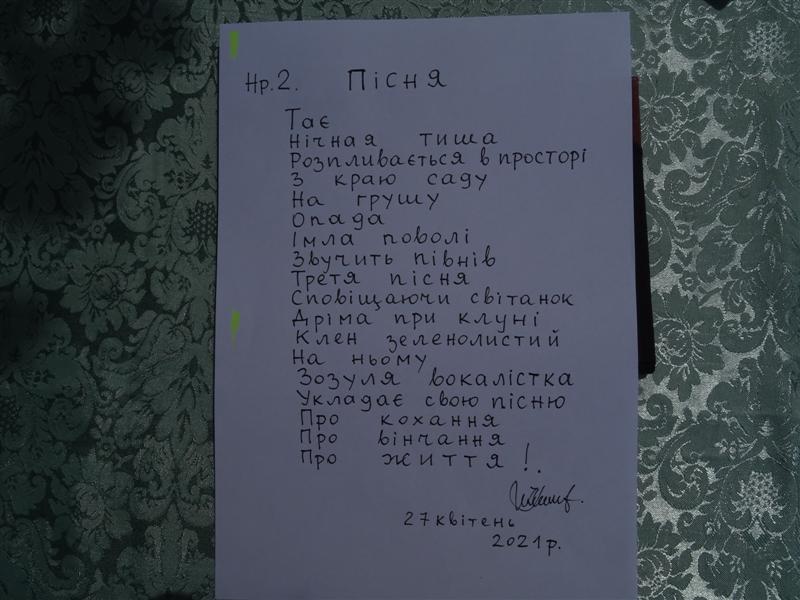 Нр.2. Пісня
Тає
Нічная тиша
Розпливається в просторі
З краю саду
На грушу
Опада
Імла поволі
Звучить півнів
Третя пісня
Сповіщаючи світанок
Дріма при клуні
Клен зеленолистий
На ньому
Зозуля вокалістка
Укладає свою пісню
Про кохання
Про вінчання
Про життя!.
27 квітень
2021р.